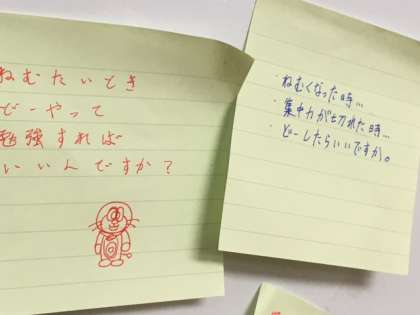 ねむたいとき
どーやって
勉強すれば
いいんですか?
・ねむくなった時...
・集中力が切れた時...
・どーしたらいいですか。